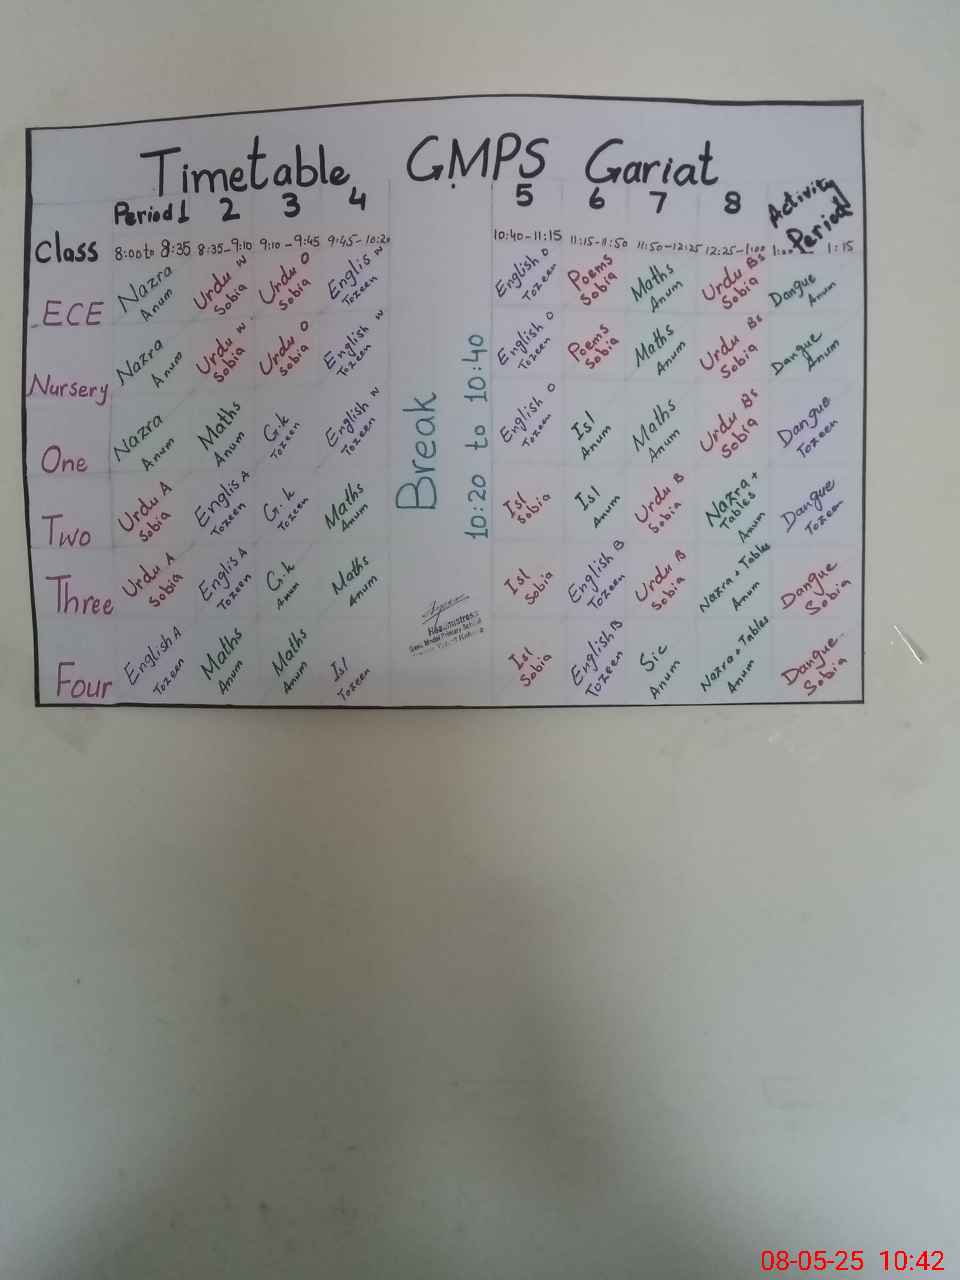 Timetable GMPS Gariat
Class Period 1 2 3 4 5 6 7 8 Activity Period
8:00 to 8:35 8:35-9:10 9:10-9:45 9:45-10:20 10:40-11:15 11:15-11:50 11:50-12:25 12:25-1:00 1:00 1:15
ECE Nazra Anum Urdu W Sobia Urdu O Sobia Englis W Tozeen English O Tozeen Poems Sobia Maths Anum Urdu Bs Sobia Dangue Anum
Nursery Nazra Anum Urdu W Sobia Urdu O Sobia English W Tozeen English O Tozeen Poems Sobia Maths Anum Urdu Bs Sobia Dangue Anum
One Nazra Anum Maths Anum G.k Tozeen English W Tozeen English O Tozeen Isl Anum Maths Anum Urdu Bs Sobia Dangue Tozeen
Break
10:20 to 10:40
Two Urdu A Sobia Englis A Tozeen G.k Tozeen Maths Anum Isl Sobia Isl Anum Urdu B Sobia Nazra + Tables Anum Dangue Tozeen
Three Urdu A Sobia Englis A Tozeen G.k Anum Maths Anum Isl Sobia English B Tozeen Urdu B Sobia Nazra + Tables Anum Dangue Sobia
Four English A Tozeen Maths Anum Maths Anum Isl Tozeen Isl Sobia English B Tozeen Sic Anum Nazra + Tables Anum Dangue Sobia
Headmistress
Govt. Model Primary School
08-05-25 10:42